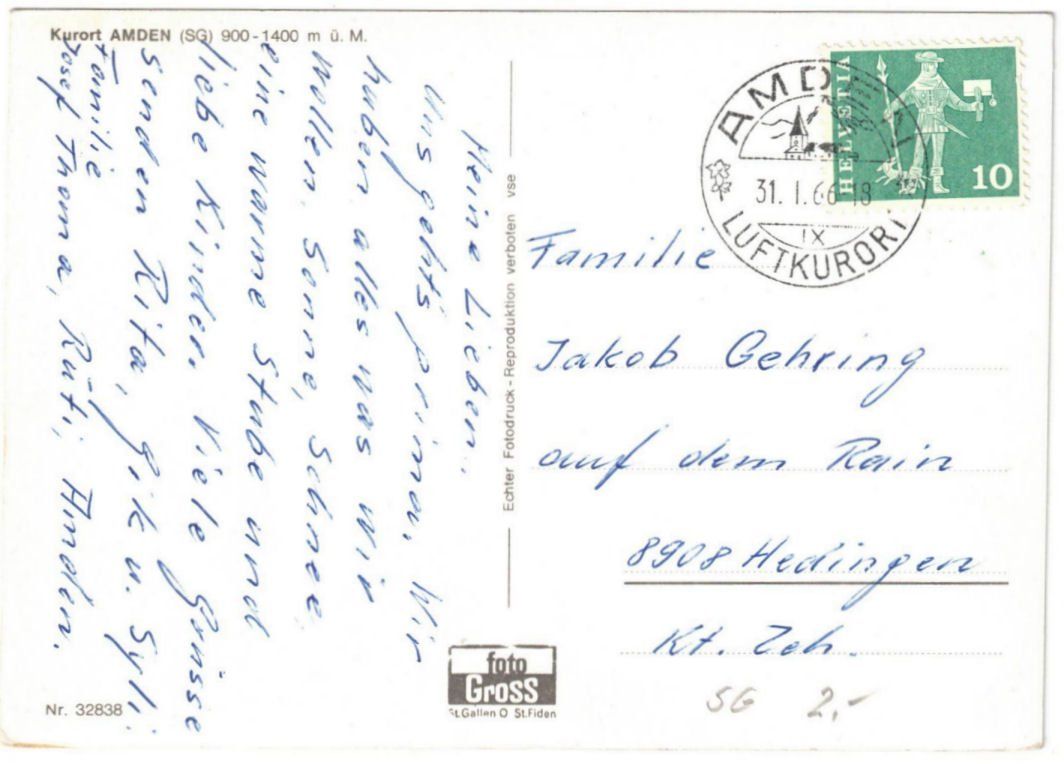 Kurort AMDEN (SG) 900-1400 m ü. M.
Meine Lieben.
Uns gehts prima. Wir
haben alles was wir
wollen, Sonne, Schnee
eine warme Stube und
liebe Kinder. Viele Grüsse
senden Rita, Gik u. Syli
Familie
Josef Thoma, Rüti, Amden.
Nr. 32838
Echter Fotodruck - Reproduktion verboten vse
foto
GROSS
St.Gallen O St.Fiden
AMDEN
31. I. 66-18
IX
LUFTKURORT
HELVETIA
10
Familie
Jakob Gehring
auf dem Rain
8908 Hedingen
Kt. Zch.
SG 2.-